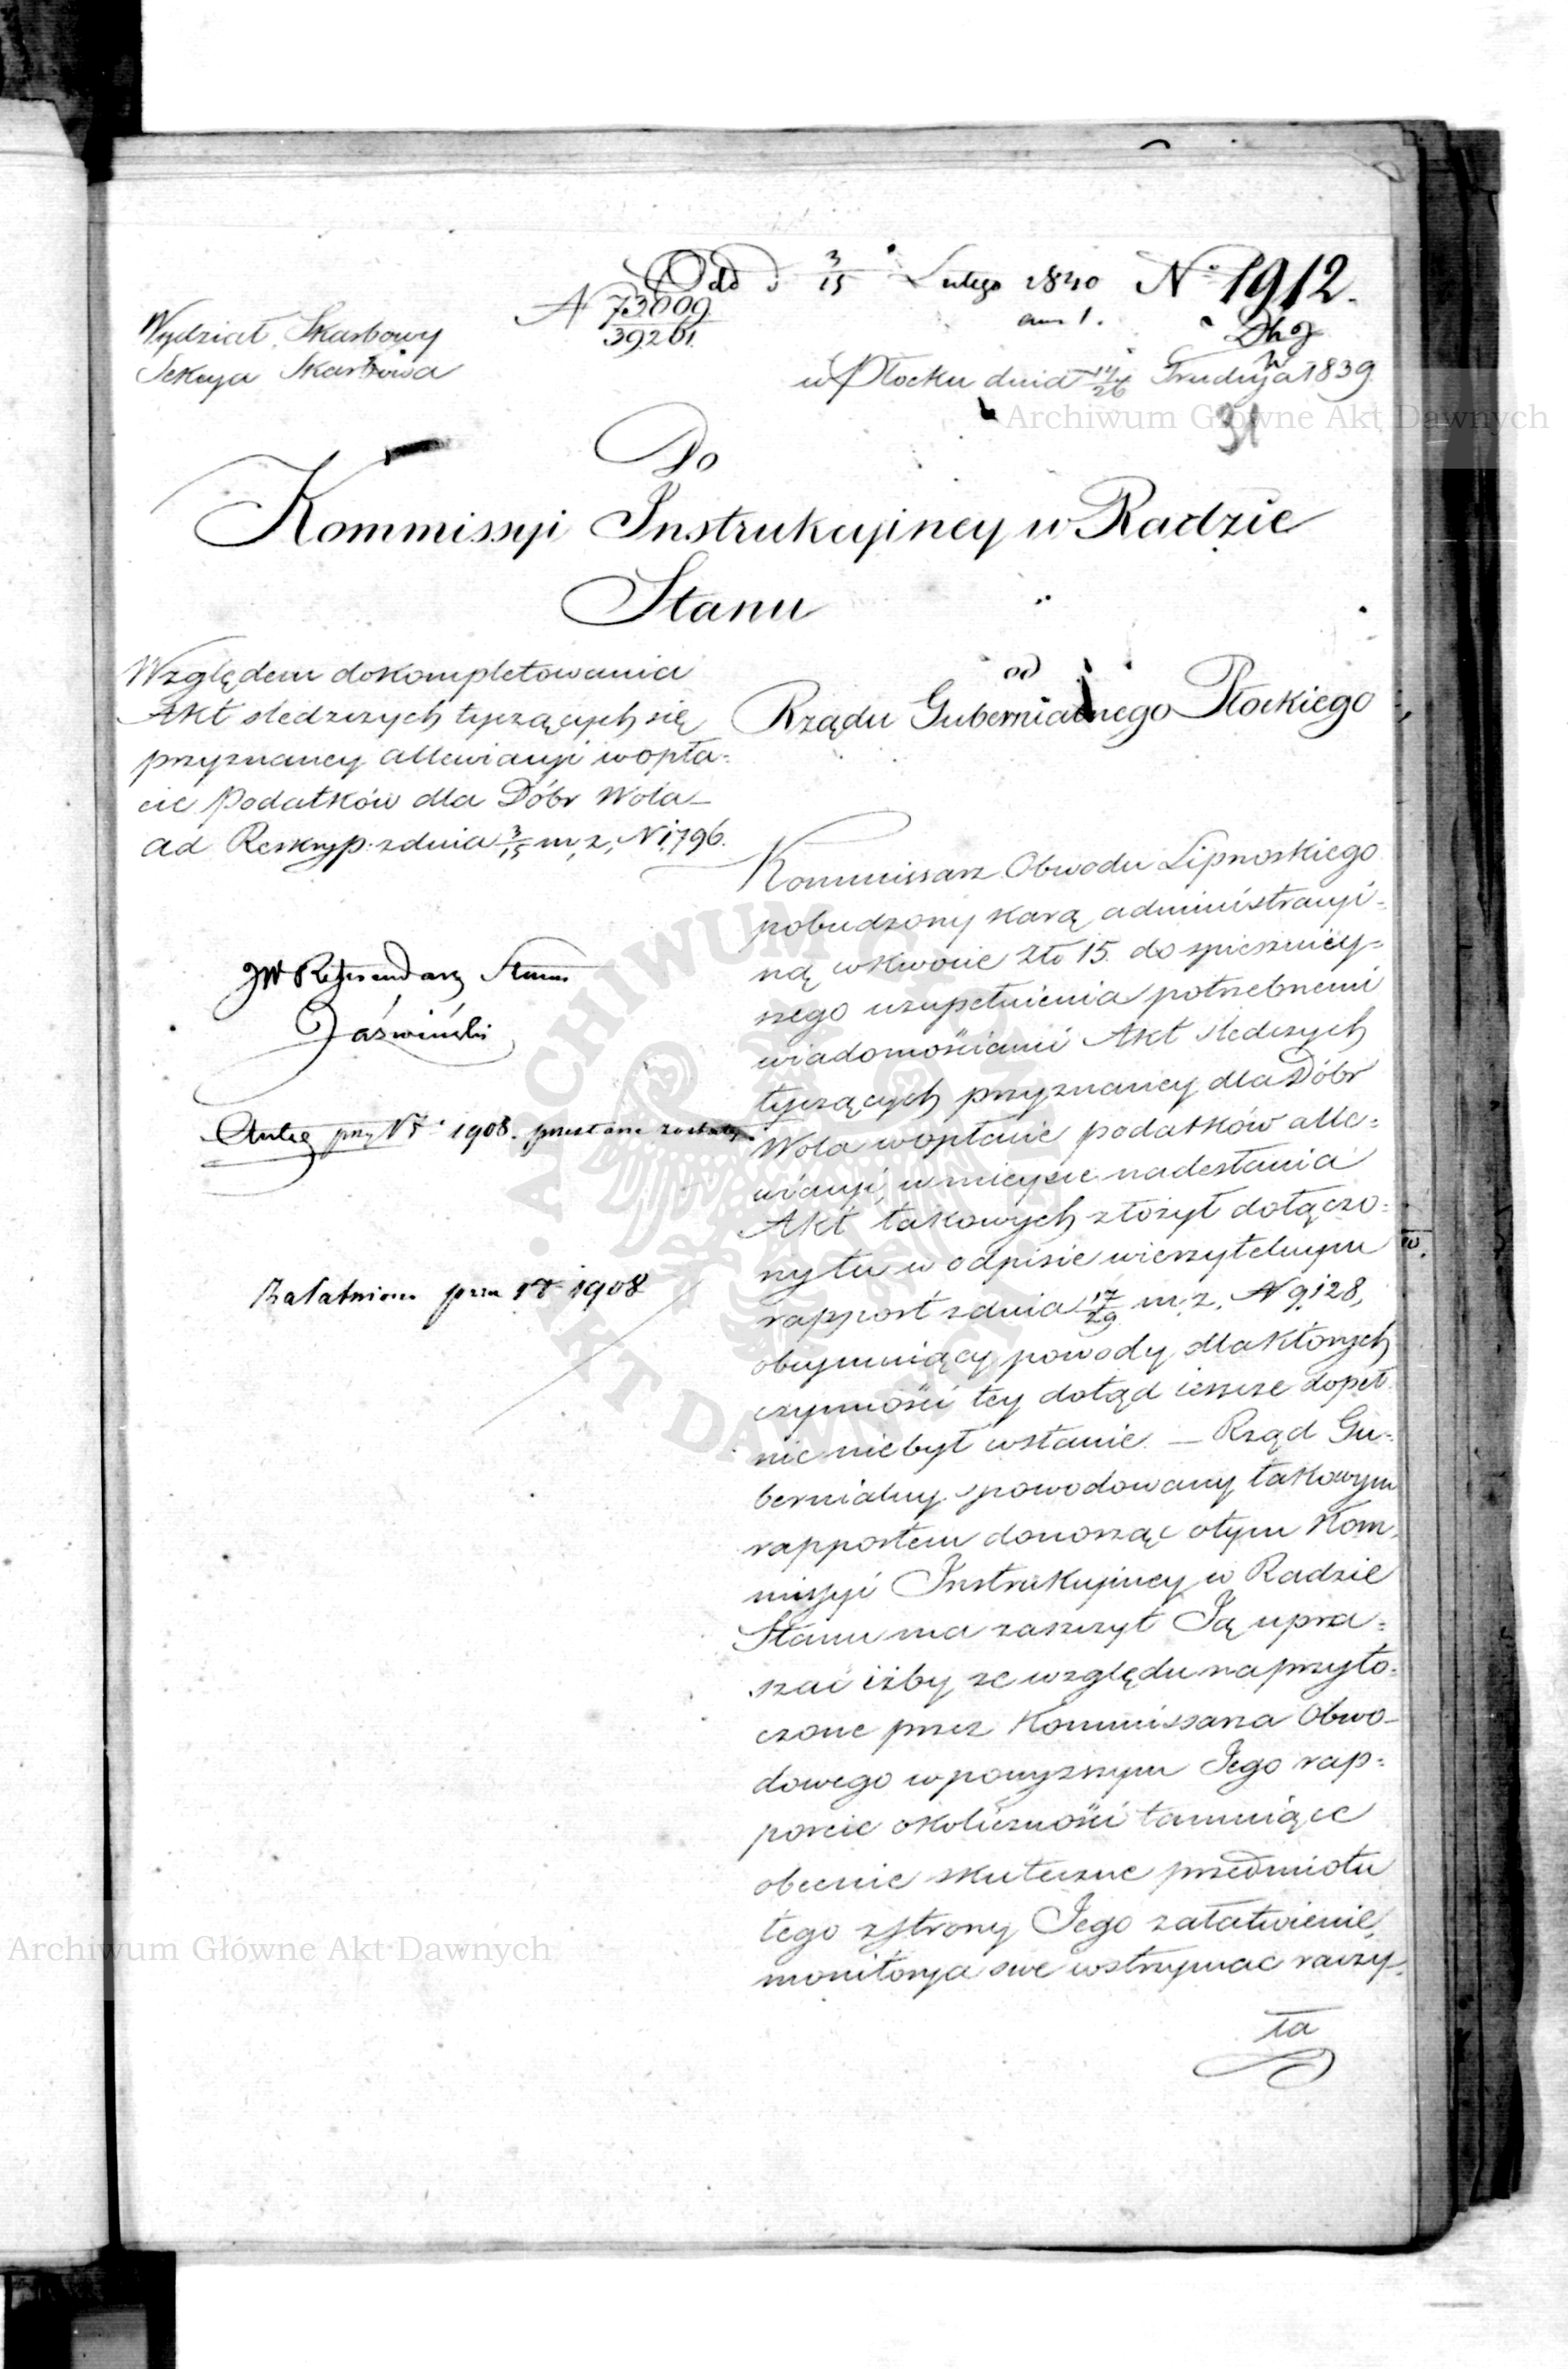 Odd d 3/15 Lutego 1840 N° 1912.
ann 1.
N 73009
39261.
Wydział Skarbowy
Sekcya Skarbowa
w Płocku dnia 14/26 Grudnia 1839
31
Do
Kommissyi Instrukcyiney w Radzie
Stanu
od
Rządu Gubernialnego Płockiego
Względem dokompletowania
Akt sledczych tyczących się
przyznaney allewiacyi w opła=
cie Podatków dla Dóbr Wola
ad Reskryp. z dnia 3/15 m, z, N 1,796.
JW Referendarz Stanu
Jaźwiński
Akta przy N 1908. przesłane zostały
Załatwione przez N 1908
Kommissarz Obwodu Lipnoskiego
pobudzony karą administracyi=
ną w kwocie Zło 15. do spieszniey=
szego uzupełnienia potrzebnemi
wiadomościami Akt sledczych
tyczących przyznaney dla Dóbr
Wola w opłacie podatków alle=
wiacyi, w mieysce nadesłania
Akt takowych złożył dołączo=
ny tu w odpisie wierzytelnym
rapport z dnia 17/29 m. z. N 9,128,
obeymuiący powody dla których
czynności tey dotąd ieszcze dopeł
nić niebył wstanie. — Rząd Gu=
bernialny spowodowany takowym
rapportem donosząc o tym Kom,
missyi Instrukcyiney w Radzie
Stanu ma zaszczyt Ją upra=
szać iżby ze względu na przyto=
czone przez Kommissarza Obwo=
dowego w powyższym Jego rap=
porcie okoliczności tamuiące
obecnie skuteczne przedmiotu
tego z strony Jego załatwienie,
monitorya swe wstrzymać raczy=
ła
Archiwum Główne Akt Dawnych
Archiwum Główne Akt Dawnych
ARCHIWUM GŁÓWNE AKT DAWNYCH